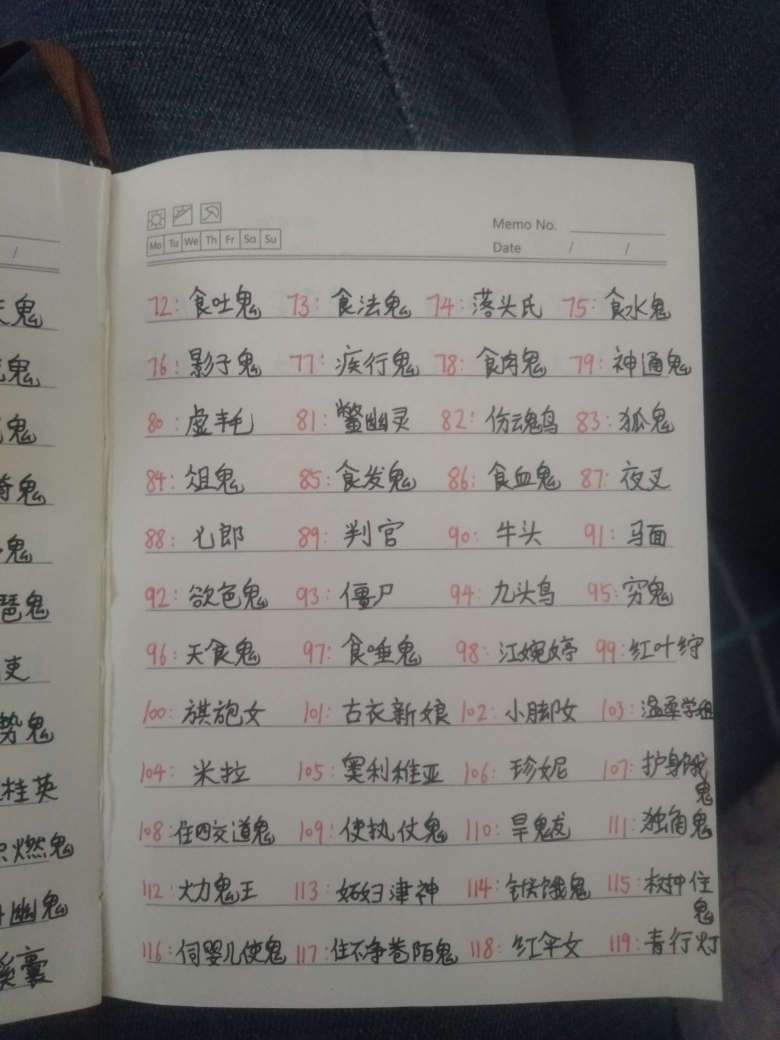 /
鬼
鬼
鬼
鬼
鬼
琶鬼
吏
势鬼
桂英
燃鬼
幽鬼
囊
Memo No.
Mo Tu We Th Fr Sa Su
Date / /
72: 食吐鬼 73: 食法鬼 74: 落头氏 75: 食水鬼
76: 影子鬼 77: 疾行鬼 78: 食肉鬼 79: 神通鬼
80: 虚耗 81: 鳖幽灵 82: 伤魂鸟 83: 狐鬼
84: 俎鬼 85: 食发鬼 86: 食血鬼 87: 夜叉
88: 七郎 89: 判官 90: 牛头 91: 马面
92: 欲色鬼 93: 僵尸 94: 九头鸟 95: 穷鬼
96: 天食鬼 97: 食唾鬼 98: 江婉婷 99: 红叶狩
100: 旗袍女 101: 古衣新娘 102: 小脚女 103: 温柔学姐
104: 米拉 105: 奥利维亚 106: 珍妮 107: 护身饿鬼
108: 住四交道鬼 109: 使执仗鬼 110: 旱魃 111: 独角鬼
112: 大力鬼王 113: 妬妇津神 114: 针饿鬼 115: 树种住鬼
116: 伺婴儿使鬼 117: 住不净巷陌鬼 118: 红伞女 119: 青行灯